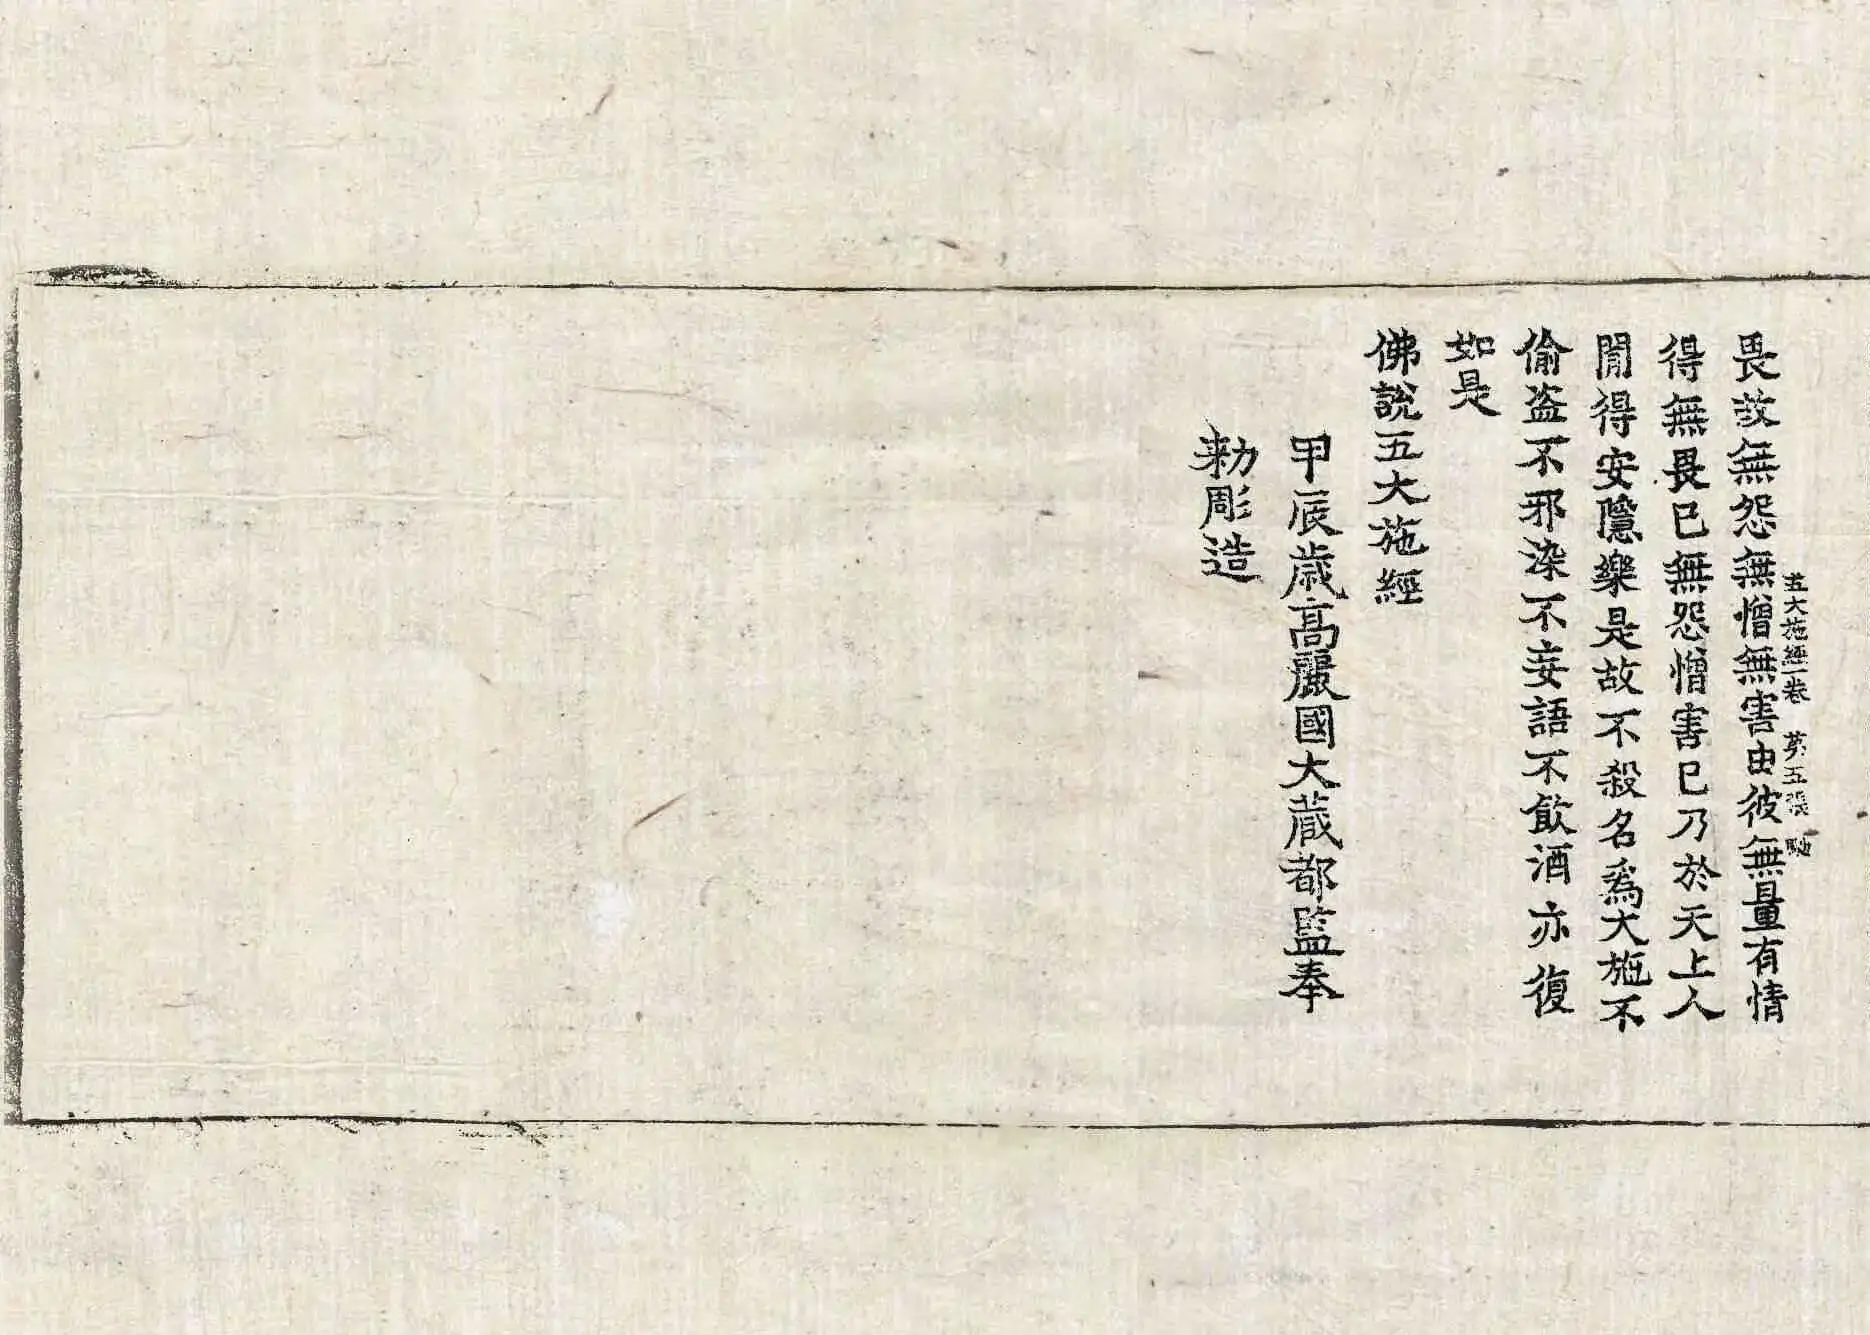 五大施經一卷 第五張 馳
畏故無怨無憎無害由彼無量有情
得無畏已無怨憎害已乃於天上人
閒得安隱樂是故不殺名爲大施不
偷盗不邪染不妄語不飲酒亦復
如是
佛說五大施經
甲辰歲高麗國大藏都監奉
勑彫造